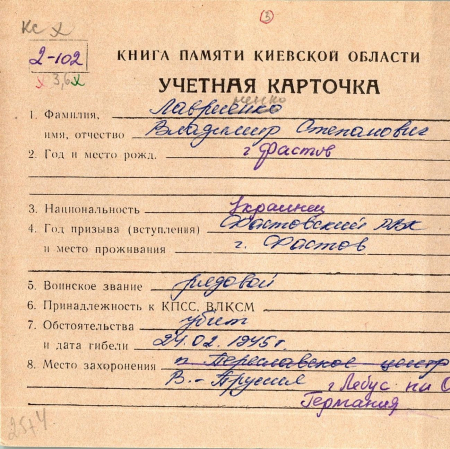 кс х
2-102
КНИГА ПАМЯТИ КИЕВСКОЙ ОБЛАСТИ
УЧЕТНАЯ КАРТОЧКА
ненко
1. Фамилия, Лавриенко
имя, отчество Владимир Степанович
2. Год и место рожд. г Фастов
3. Национальность Украинец
4. Год призыва (вступления) Фастовский РВК
и место проживания г. Фастов
5. Воинское звание рядовой
6. Принадлежность к КПСС, ВЛКСМ
7. Обстоятельства убит
и дата гибели 24.02.1945г.
8. Место захоронения п. Переславское центр
В.-Пруссия г Лебус на О
Германия